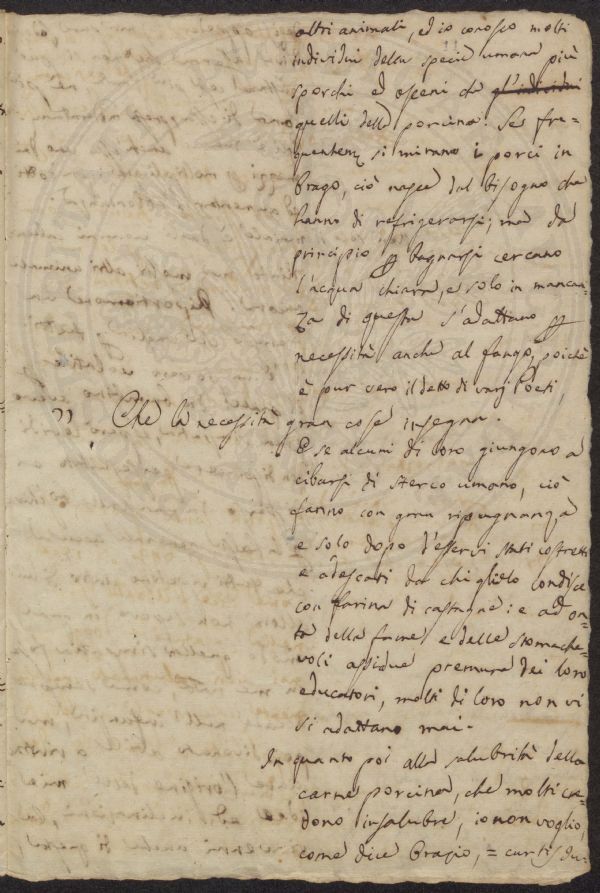 altri animali, ed io conosco molti
individui della specie umana più
sporchi ed osceni che gl'individui
quelli della porcina. Se fre-
quentem. si mirano i porci in
brago, ciò nasce dal bisogno che
hanno di refrigerarsi; ma da
principio p bagnarsi cercano
l'acqua chiara, e solo in mancan-
za di questa s'adattano p
necessità anche al fango, poichè
è pur vero il detto di varj Poeti,
" Che la necessità gran cose insegna.
E se alcuni di loro giungono a
cibarsi di sterco umano, ciò
fanno con gran ripugnanza
e solo dopo d'esservi stati costretti
e adescati da chi glielo condisce
con farina di castagne: e ad on-
ta della fame e delle stomache-
voli assidue premure dei loro
educatori, molti di loro non vi
si adattano mai.
In quanto poi alla salubrità della
carne porcina, che molti cre-
dono insalubre, io non voglio,
come dice Orazio, = curtis du-